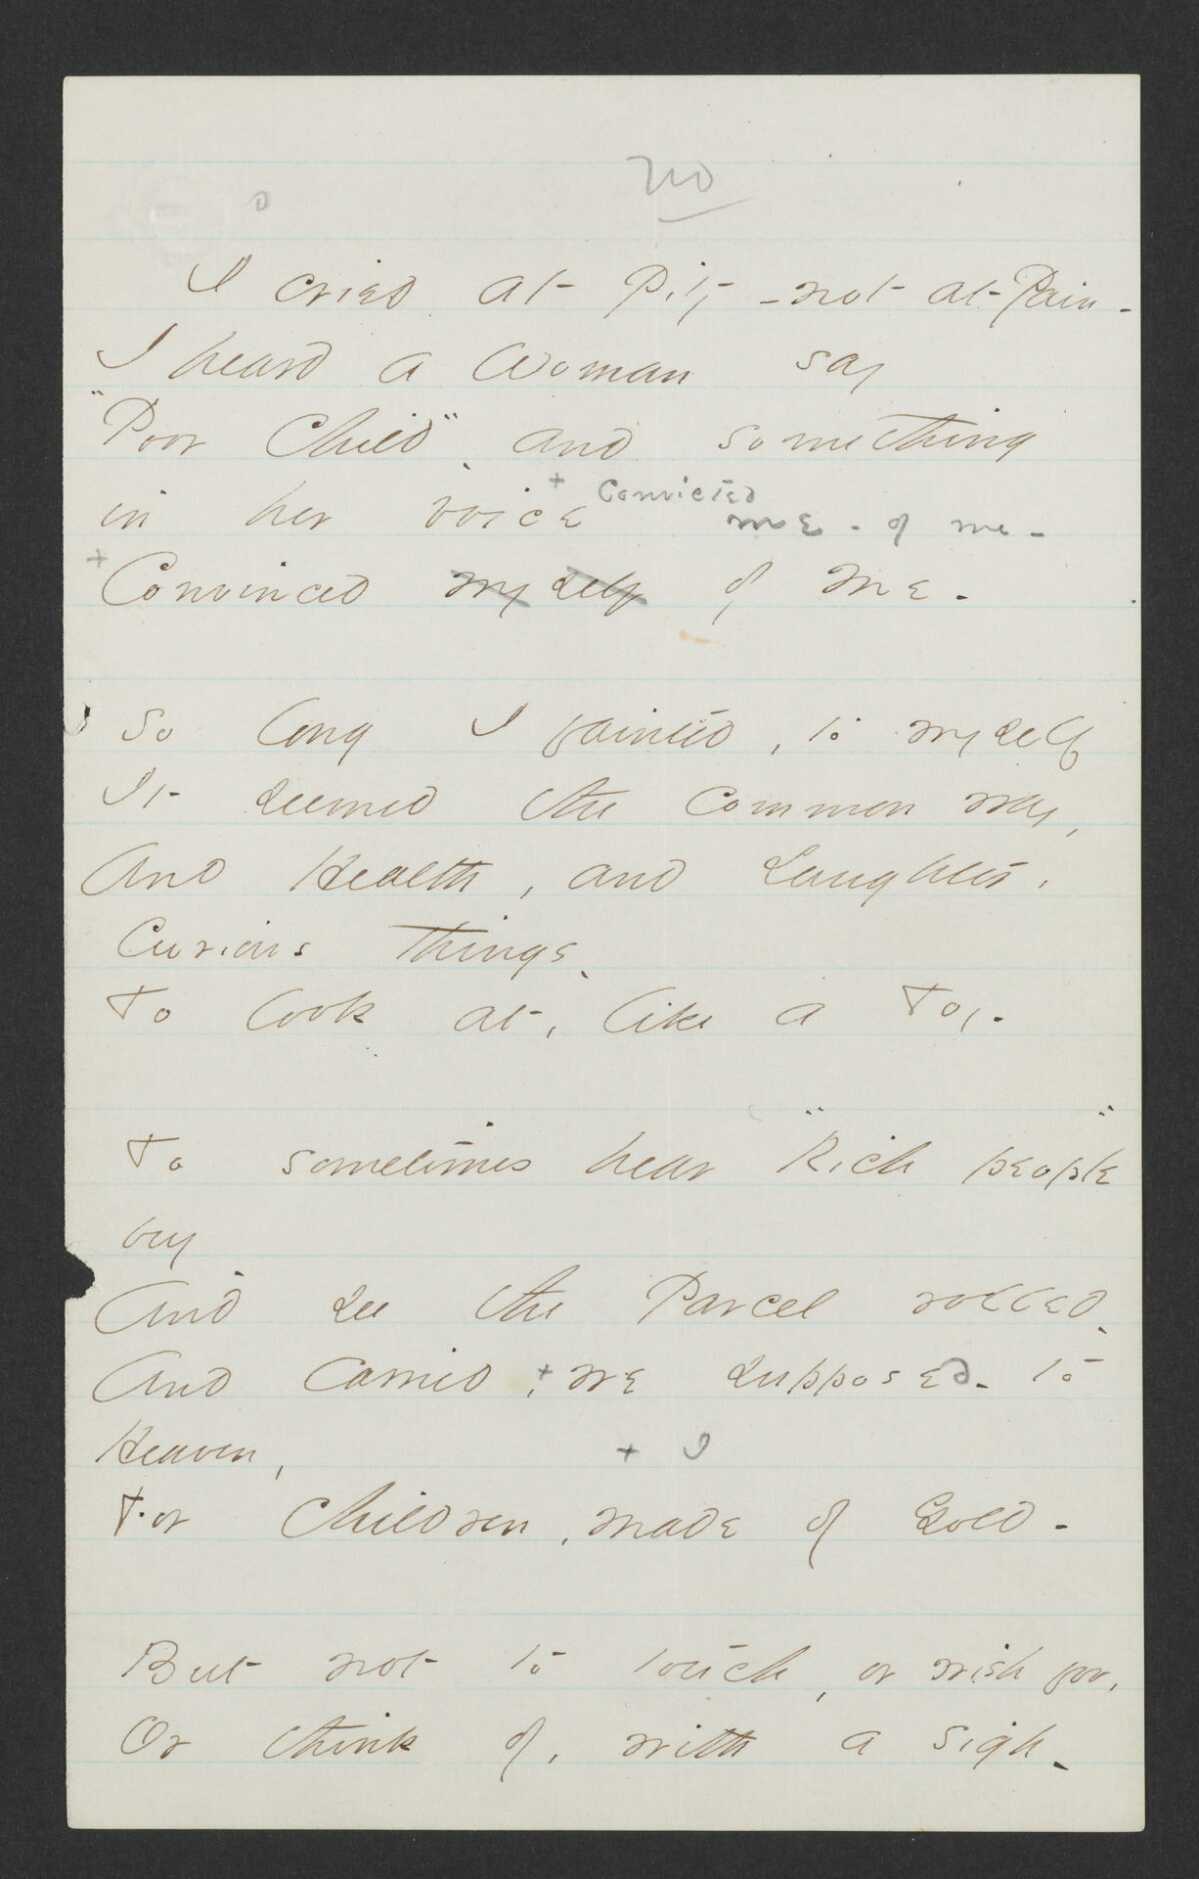 no
I cried at Pity - not at Pain -
I heard a Woman say
"Poor Child", and something
in her voice + Convicted
me - of me -
+ Convinced myself of me -
So long I fainted, to myself
It seemed the common way,
And Health, and Laughter,
Curious things -
To look at, like a Toy -
To sometimes hear "Rich people"
buy
And see the Parcel rolled -
And Carried, + we supposed - to
Heaven,
+ I
For Children, made of Gold -
But not to touch, or wish for,
Or think of, with a sigh -